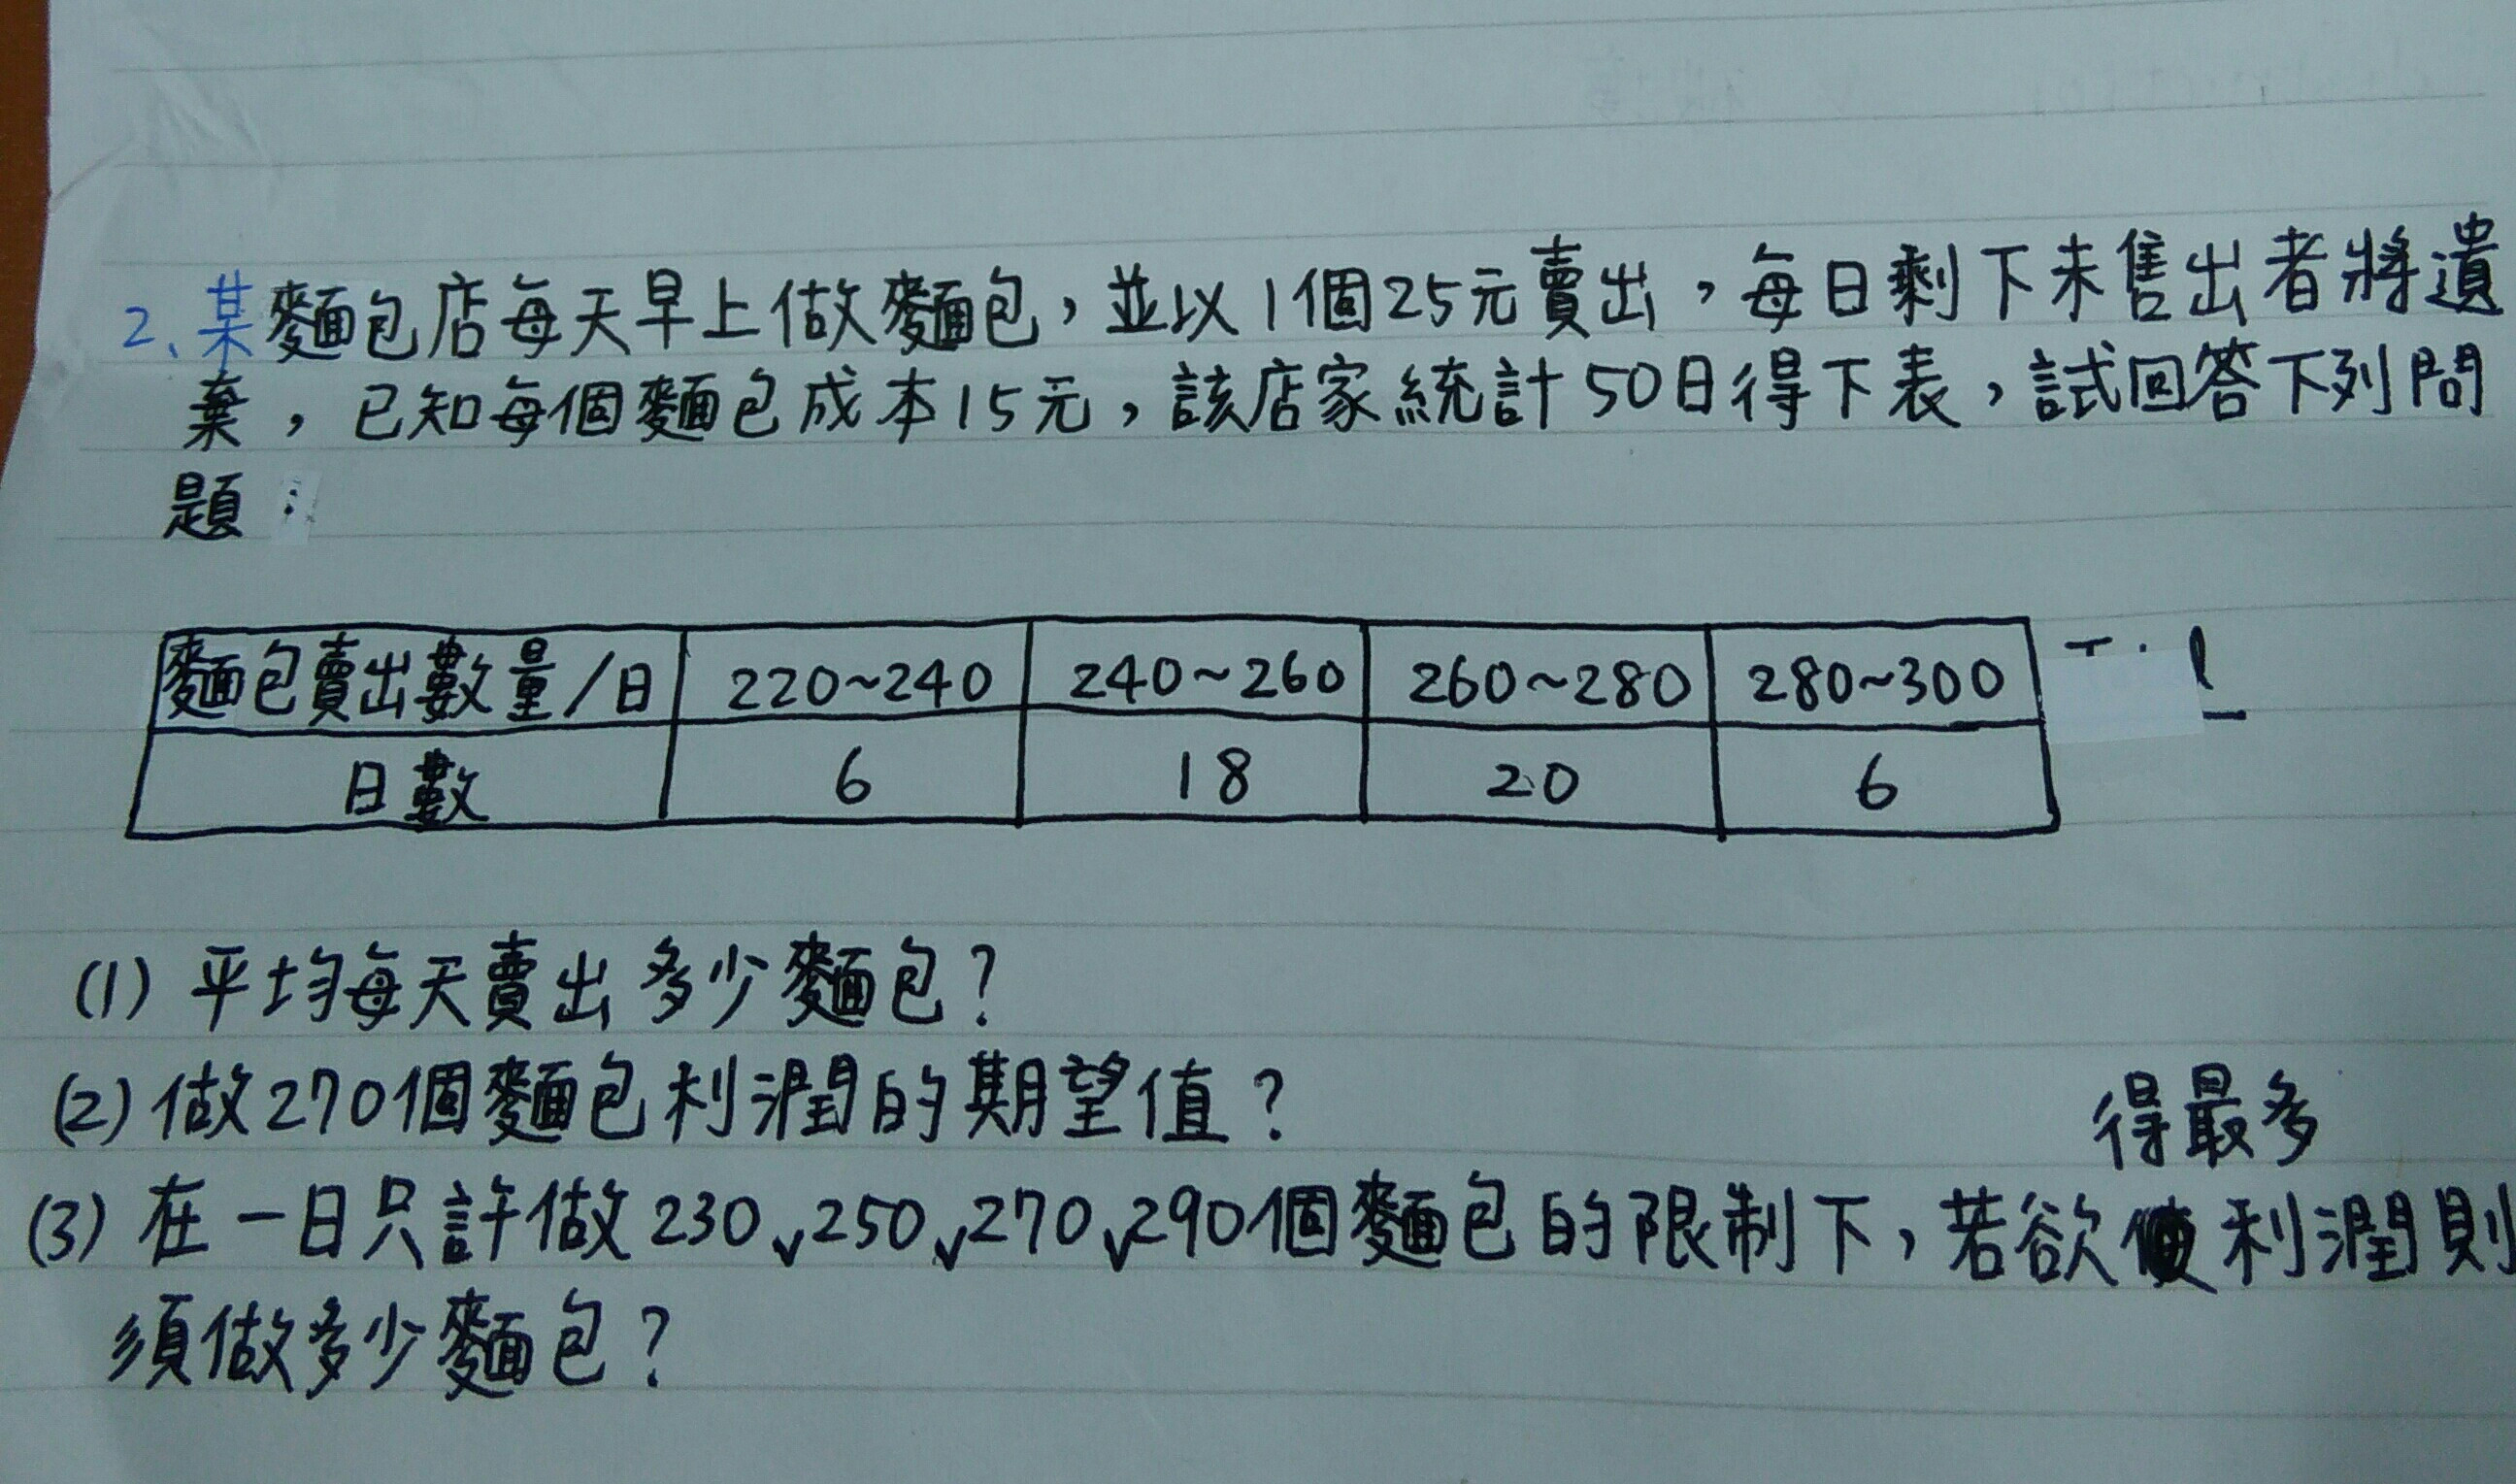 2、某麵包店每天早上做麵包，並以1個25元賣出，每日剩下未售出者將遺
棄，已知每個麵包成本15元，該店家統計50日得下表，試回答下列問
題：
麵包賣出數量/日 220~240 240~260 260~280 280~300
日數 6 18 20 6
(1) 平均每天賣出多少麵包？
(2) 做270個麵包利潤的期望值？
得最多
(3) 在一日只許做230、250、270、290個麵包的限制下，若欲使利潤則
須做多少麵包？